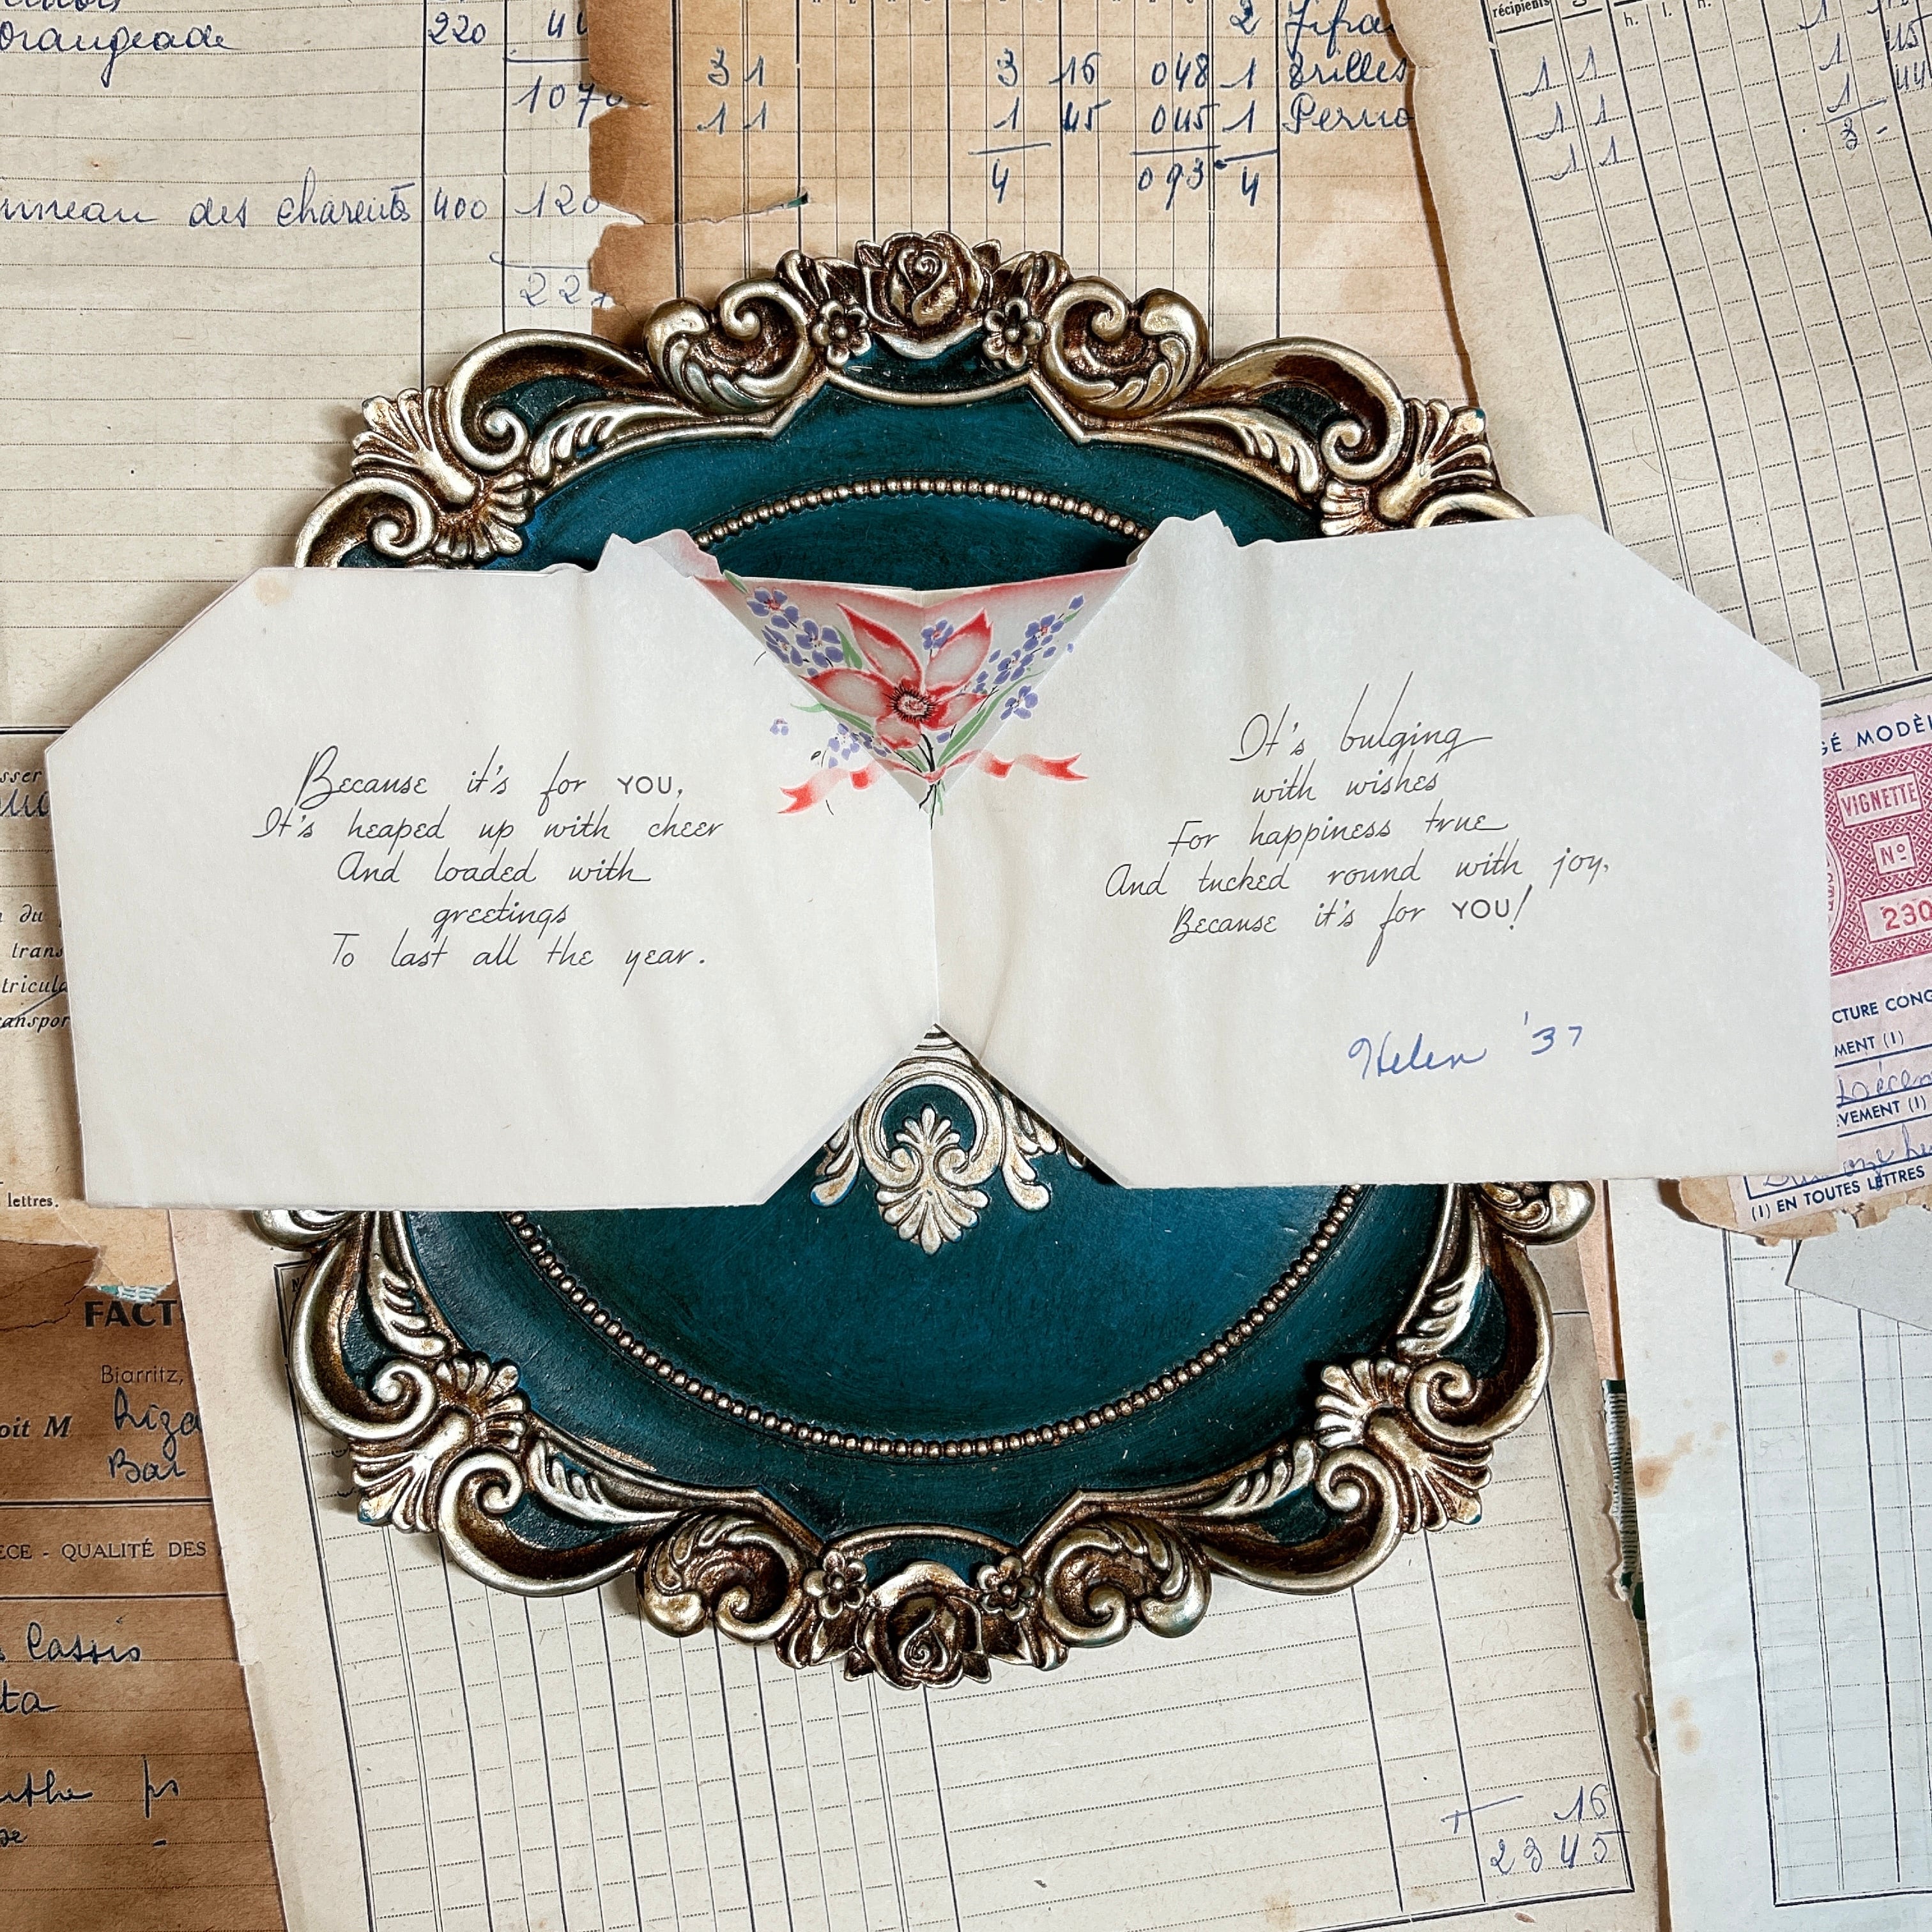 orangeade 220
1070
des charente 400 120
22
31 3 16 048 1
11 1 45 045 1
4 093 4
2
récipients
h. l. h.
1 1 1
1 1 1
1 1 3
Because it's for YOU,
It's heaped up with cheer
And loaded with
greetings
To last all the year.
It's bulging
with wishes
For happiness true
And tucked round with joy,
Because it's for YOU!
Helen '37
GÉ MODÈ
VIGNETTE
Nº
230
CTURE CONG
MENT (1)
VEMENT (1)
(1) EN TOUTES LETTRES
sser
du
trans
tricula
ranspor
lettres.
FACT
Biarritz,
oit M
Bar
ECE - QUALITÉ DES
Cassis
ta
16
2345